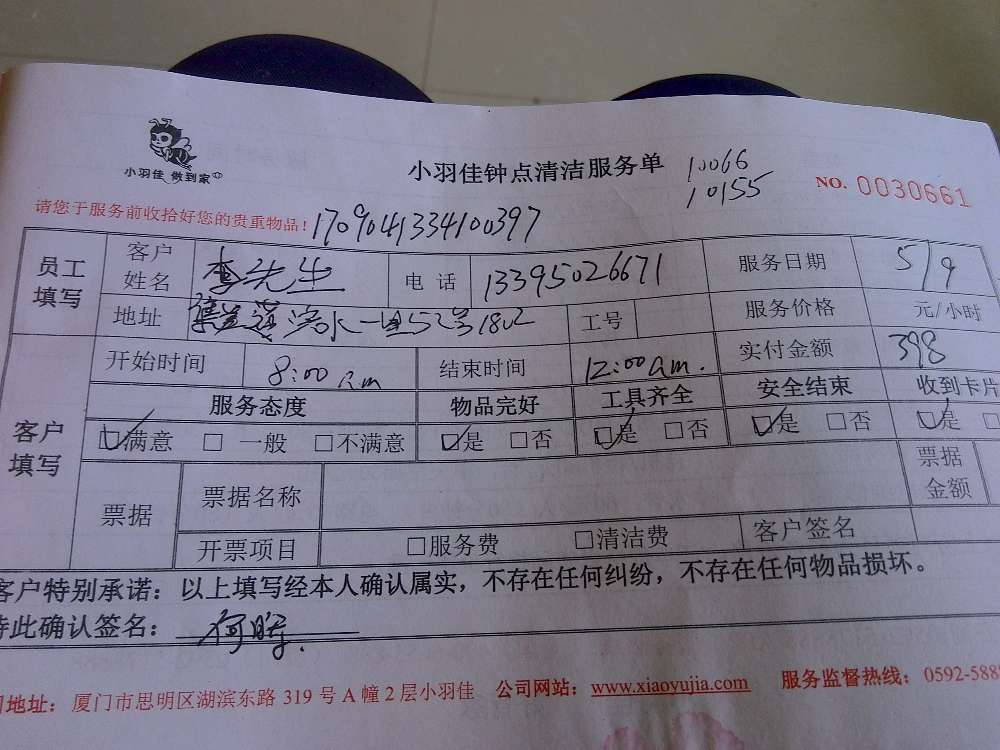 小羽佳 做到家
小羽佳钟点清洁服务单
10066
10155
NO. 0030661
请您于服务前收拾好您的贵重物品!
1709041334100397
员工填写 客户姓名 李先生 电话 13395026671 服务日期 5/9
地址 滨水一里52号1802 工号 服务价格 元/小时
客户填写 开始时间 8:00 am 结束时间 12:00 am. 实付金额 398
服务态度 物品完好 工具齐全 安全结束 收到卡片
☑满意 □ 一般 □不满意 ☑是 □否 ☑是 □否 ☑是 □否 ☑是 □
票据 票据名称 票据金额
开票项目 □服务费 □清洁费 客户签名
客户特别承诺：以上填写经本人确认属实，不存在任何纠纷，不存在任何物品损坏。
特此确认签名：
地址：厦门市思明区湖滨东路 319 号 A 幢 2 层小羽佳 公司网站：www.xiaoyujia.com 服务监督热线：0592-588